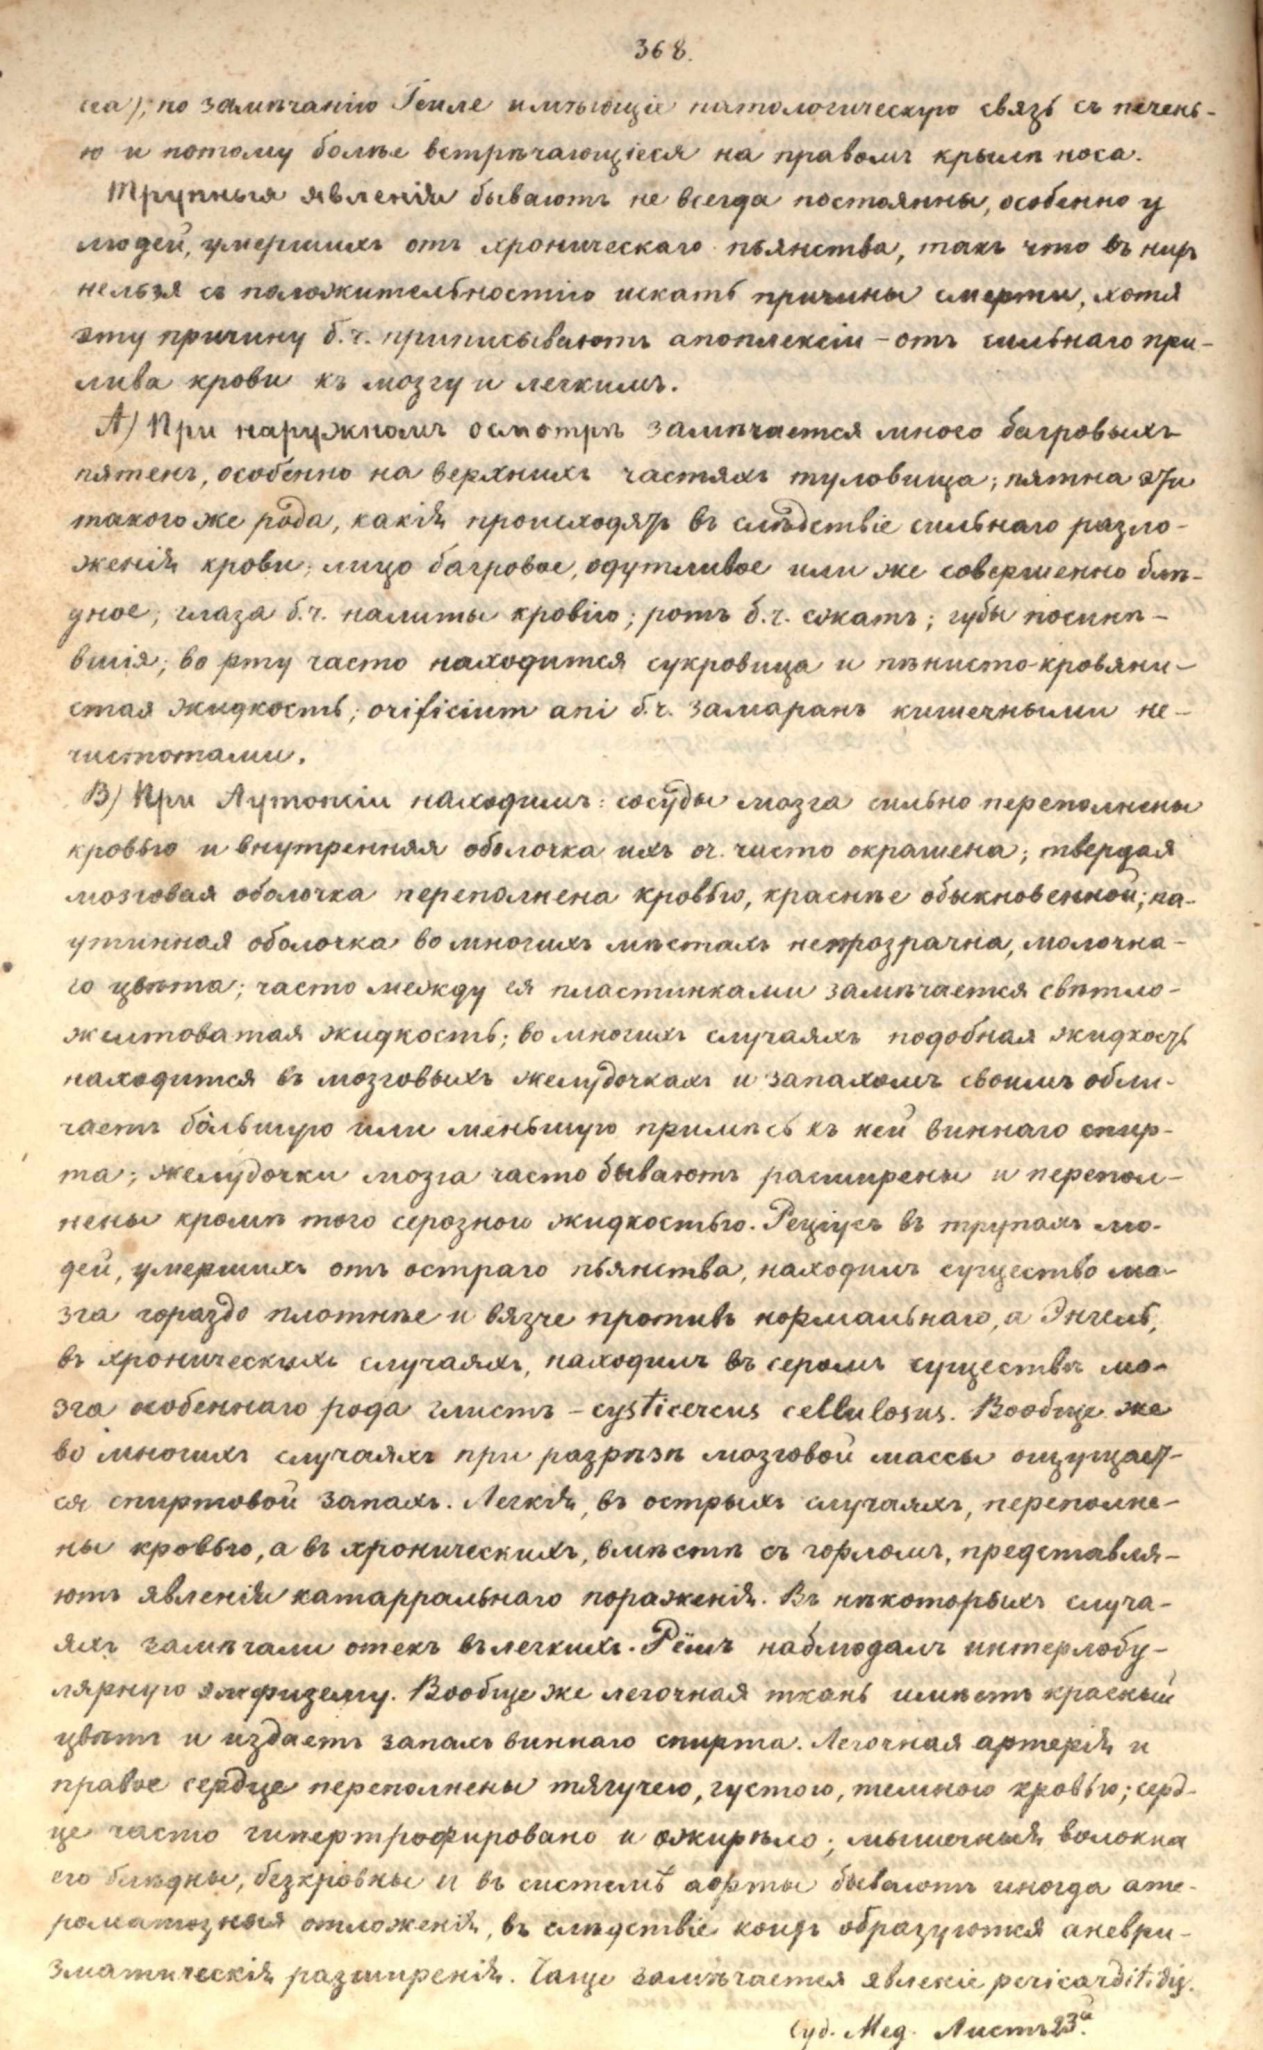 368.
сеа); по замѣчанію Генле имѣющіе патологическую связь съ печень-
ю и потому болѣе встрѣчающіеся на правомъ крылѣ носа.
Трупныя явленія бываютъ не всегда постоянны, особенно у
людей, умершихъ отъ хроническаго пьянства, такъ что въ нихъ
нельзя съ положительностію искать причины смерти, хотя
эту причину б.ч. приписываютъ апоплексіи – отъ сильнаго при-
лива крови къ мозгу и легкимъ.
А) При наружномъ осмотрѣ замѣчается много багровыхъ
пятенъ, особенно на верхнихъ частяхъ туловища; пятна эти
такого же рода, какія происходятъ въ слѣдствіе сильнаго разло-
женія крови; лицо багровое, одутливое или же совершенно блѣ-
дное; глаза б.ч. налиты кровію; ротъ б.ч. сжатъ; губы посинѣ-
вшія; во рту часто находится сукровица и пѣнисто-кровяни-
стая жидкость; orificium ani б.ч. замаранъ кишечными не-
чистотами.
В) При Аутопсіи находимъ: сосуды мозга сильно переполнены
кровью и внутренняя оболочка ихъ оч. чисто окрашена; твердая
мозговая оболочка переполнена кровью, краснѣе обыкновенной; па-
утинная оболочка во многихъ мѣстахъ непрозрачна, молочна-
го цвѣта; часто между ея пластинками замѣчается свѣтло-
желтоватая жидкость; во многихъ случаяхъ подобная жидкость
находится въ мозговыхъ желудочкахъ и запахомъ своимъ обли-
чаетъ бо́льшую или меньшую примѣсь къ ней виннаго спир-
та; желудочки мозга часто бываютъ расширены и перепол-
нены кромѣ того серозною жидкостью. Реціусъ въ трупахъ лю-
дей, умершихъ отъ остраго пьянства, находилъ существо мо-
зга гораздо плотнѣе и вязче противъ нормальнаго, а Энгель,
въ хроническихъ случаяхъ, находилъ въ серомъ существѣ мо-
зга особеннаго рода глистъ – cysticercus cellulosus. Вообще же
во многихъ случаяхъ при разрѣзѣ мозговой массы ощущает-
ся спиртовой запахъ. Легкія, въ острыхъ случаяхъ, переполне-
ны кровью, а въ хроническихъ, вмѣстѣ съ горломъ, представля-
ютъ явленія катарральнаго пораженія. Въ нѣкоторыхъ случа-
яхъ замѣчали отекъ въ легкихъ. Рёшъ наблюдалъ интерлобу-
лярную эмфизему. Вообще же легочная ткань имѣетъ красный
цвѣтъ и издаетъ запахъ виннаго спирта. Легочная артерія и
правое сердце переполнены тягучею, густою, темною кровью; серд-
це часто гипертрофировано и ожирѣло; мышечныя волокна
его блѣдны, безкровны и въ системѣ аорты бываютъ иногда ате-
роматозныя отложенія, въ слѣдствіе коихъ образуются аневри-
зматическія расширенія. Чаще замѣчается явленіе pericarditidis.
Суд. Мед. Листъ 23й.